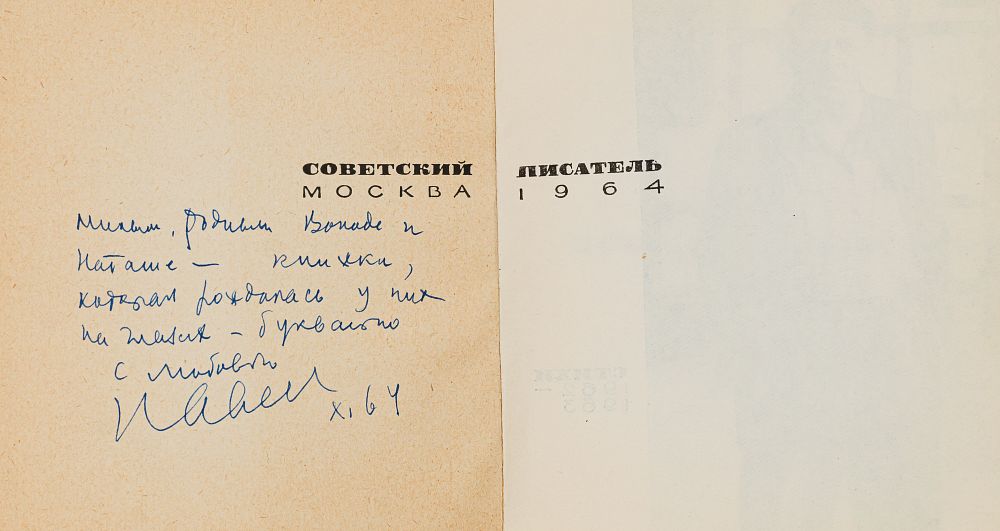 СОВЕТСКИЙ ПИСАТЕЛЬ
МОСКВА 1964
Милым, родным Вольде и
Наташе — книжки,
которая рождалась у них
на глазах — буквально
с любовью
XI 64